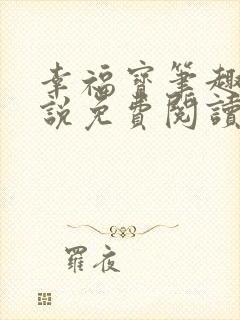 幸福寶筆趣
說免費閱讀
羅夜